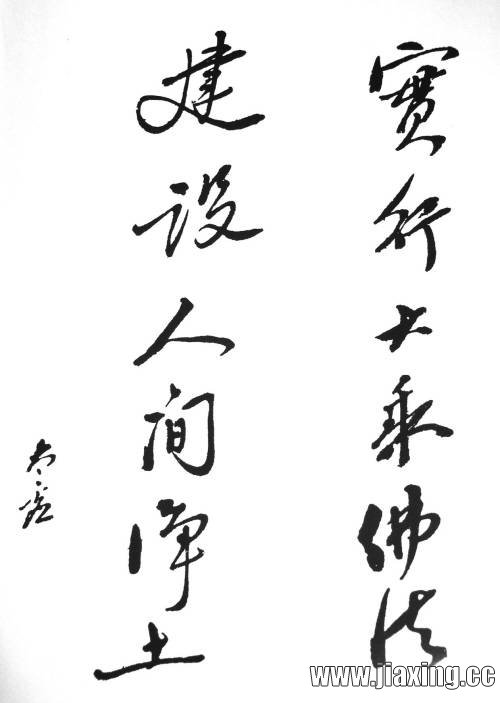 實行大乘佛法
建设人间净土
太虚
www.jiaxing.cc